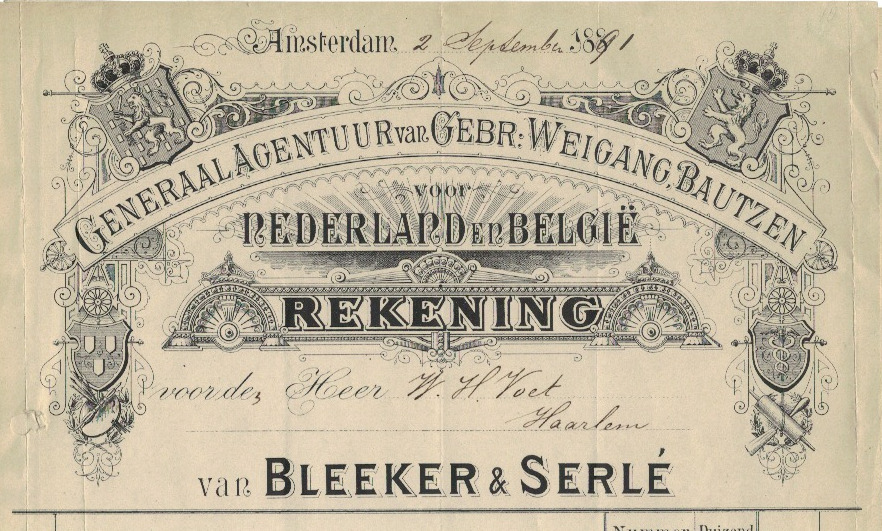 Amsterdam 2 September 1891
GENERAAL AGENTUUR van GEBR: WEIGANG, BAUTZEN
voor
NEDERLAND EN BELGIË
REKENING
voor den Heer W. H. Voet
Haarlem
van BLEEKER & SERLÉ
Nummer Duizend